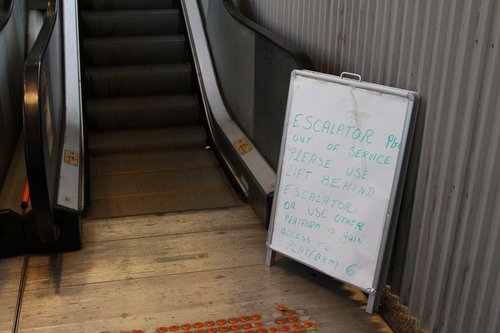 ESCALATOR P6
OUT OF SERVICE
PLEASE USE
LIFT BEHIND
ESCALATOR
OR USE OTHER
PLATFORM TO GAIN
ACCESS TO
PLATFORM 6